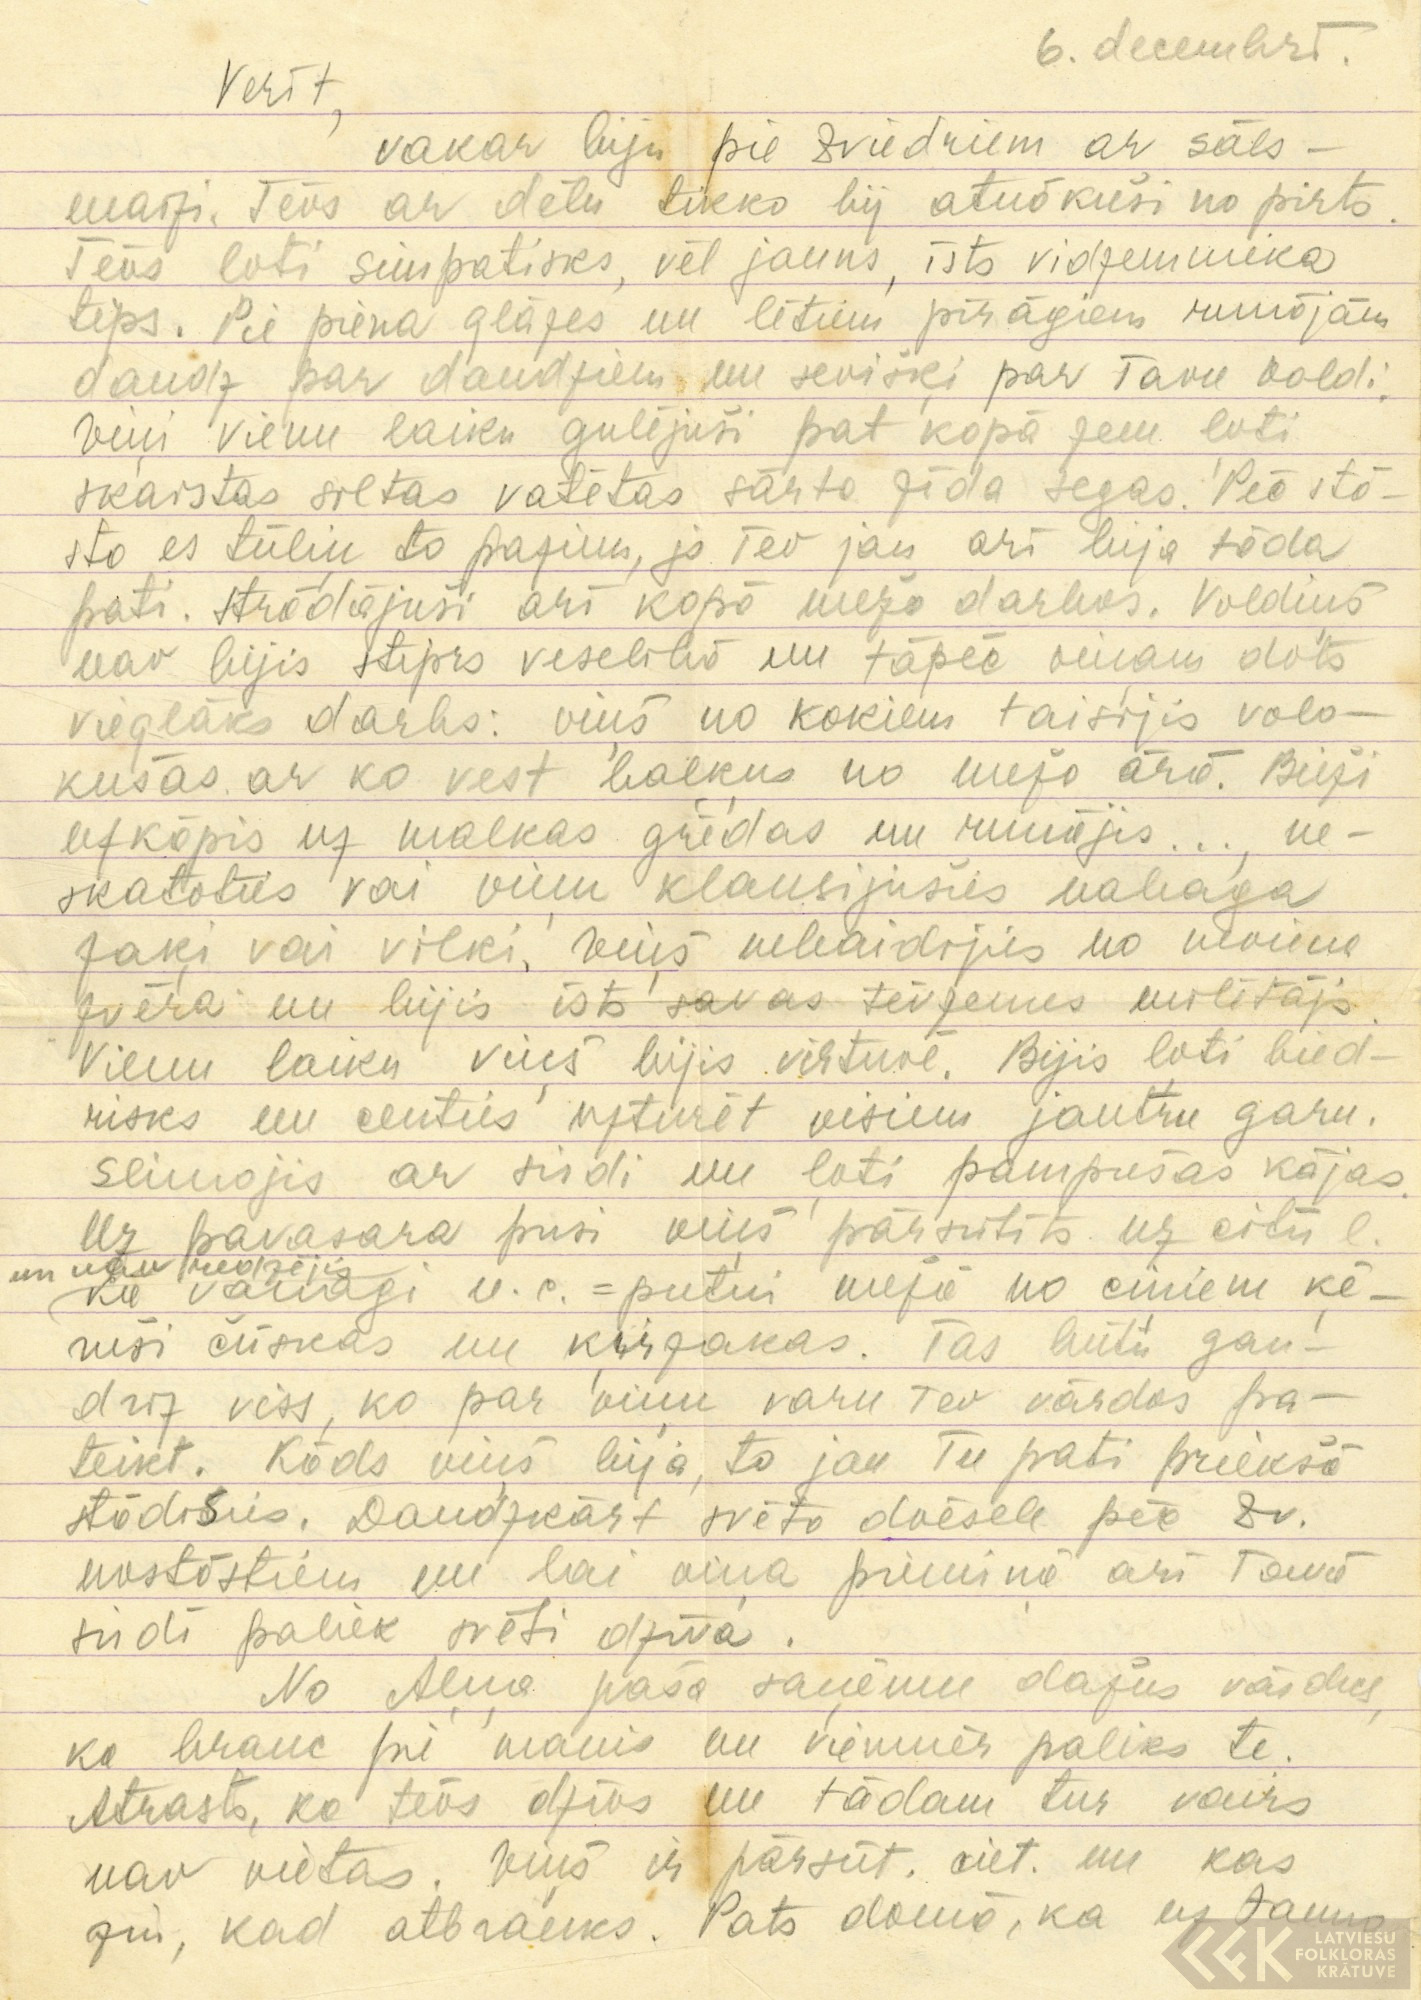 6. decembrī.
Verīt,
vakar biju pie Zviedriem ar sāls-
maizi. Tēvs ar dēlu tikko bij atnākuši no pirts.
Tēvs ļoti simpatisks, vēl jauns, īsts vidzemnieka
tips. Pie piena glāzes un lētiem pīrāgiem runājām
daudz par daudziem un sevišķi par Tavu Voldi.
Viņi vienu laiku gulējuši pat kopā zem ļoti
skaistas siltas vatētas sārta zīda segas. Pēc stā-
sta es tūliņ to pazinu, jo Tev jau arī bija tāda
pati. Strādājuši arī kopā meža darbos. Voldiņš
nav bijis stiprs veselībā un tāpēc viņam dots
vieglāks darbs: viņš no kokiem taisījis valo-
kušas ar ko vest baļķus no meža ārā. Bieži
uzkāpis uz malkas grēdas un runājis..., ne-
skatoties vai viņu klausījušies nabaga
zaķi vai vilki. Viņš nebaidījies no neviena
zvēra un bijis īsts savas tēvzemes mīlētājs.
Vienu laiku viņš bijis virtuvē. Bijis ļoti bied-
risks un centies uzturēt visiem jautru garu.
Slimojis ar sirdi un ļoti pampušas kājas.
Uz pavasara pusi viņš pārsūtīts uz citu l.
un nav redzējis
ka vanagi u.c. = putni mežā no ciņiem ķē-
ruši čūskas un ķirzakas. Tas būtu gan-
drīz viss, ko par viņu varu Tev vārdos pa-
teikt. Kāds viņš bija, to jau Tu pati priekšā
stādīsies. Daudzkārt svēta dvēsele pēc Zv.
nostāstiem un lai viņa piemiņa arī Tavā
sirdī paliek svēti dzīva.
No Aļņa paša saņēmu dažus vārdus,
ka brauc pie manis un vienmēr paliks te.
Atrasts, ka tēvs dzīvs un tādam tur vairs
nav vietas. Viņš ir pārsūt. ciet. un kas
zin, kad atbrauks. Pats domā, ka uz Jauno
LATVIEŠU
FOLKLORAS
KRĀTUVE